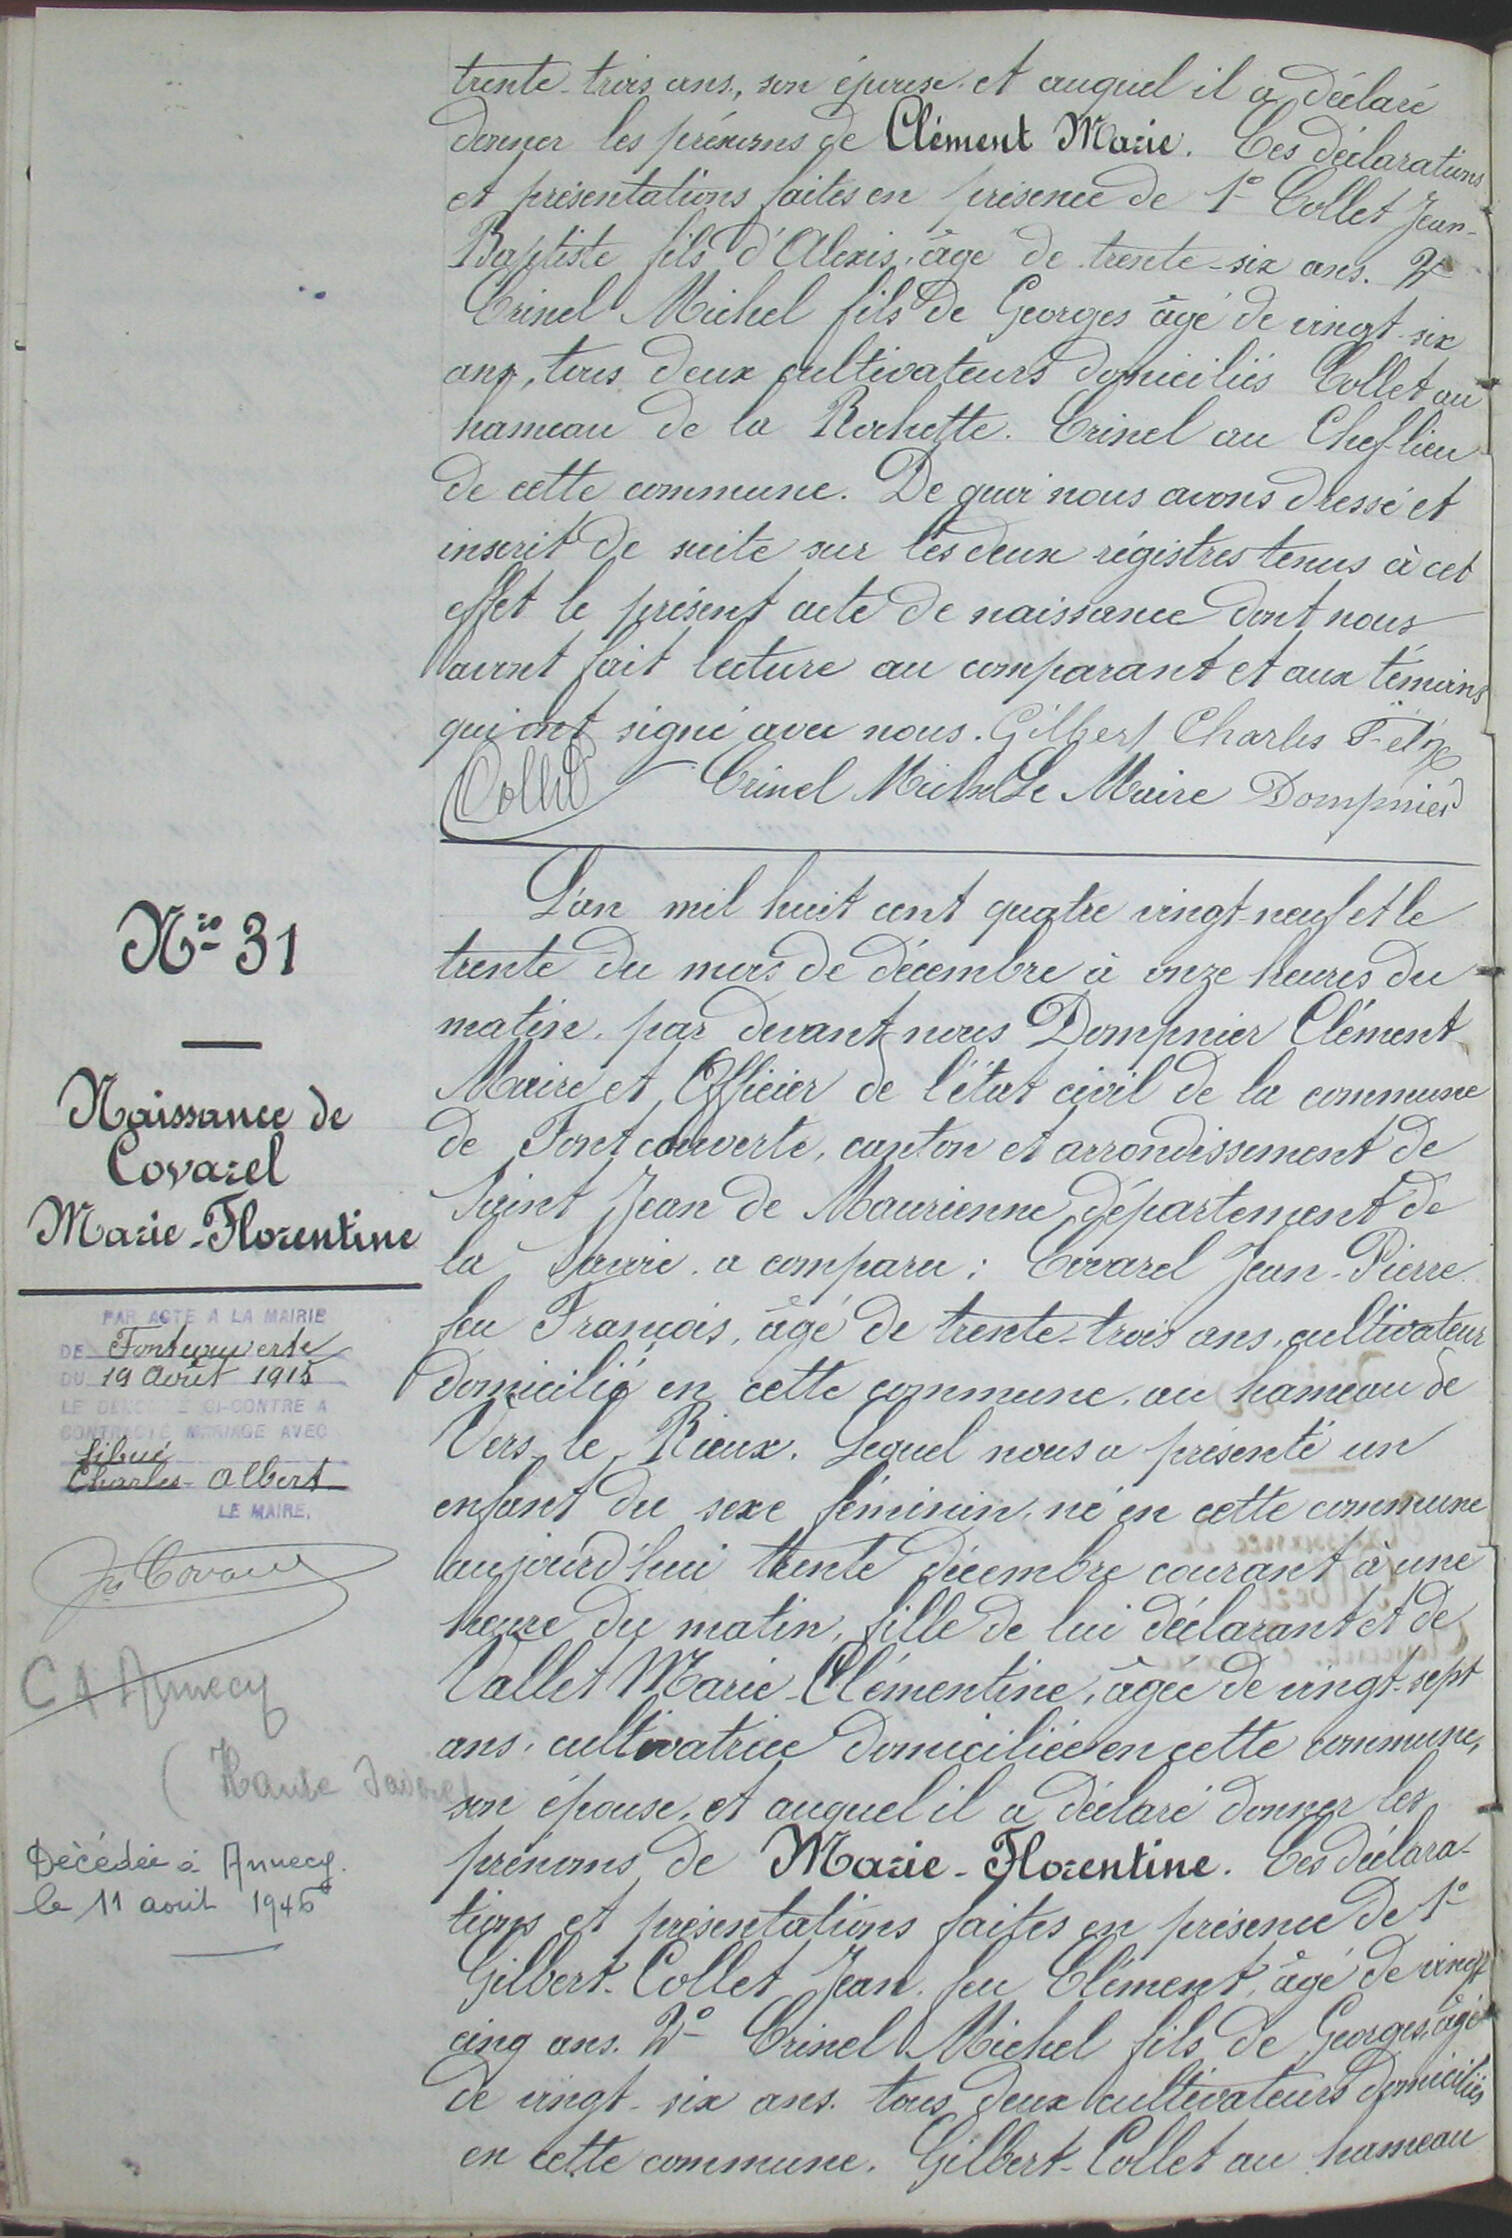 trente-trois ans, son épouse et auquel il a déclaré
donner les prénoms de Clément Marie. Ces déclarations
et présentations faites en présence de 1° Collet Jean-
Baptiste fils d'Alexis, âgé de trente-six ans. 2°
Crinel Michel fils de Georges âgé de vingt-six
ans, tous deux cultivateurs domiciliés Collet au
hameau de la Rochette. Crinel au Chef-lieu
de cette commune. De quoi nous avons dressé et
inscrit de suite sur les deux régistres tenus à cet
effet le présent acte de naissance dont nous
avont fait lecture au comparant et aux témoins
qui ont signé avec nous. Gilbert Charles Félix
Collet Crinel Michel Le Maire Dompnier
N° 31
Naissance de
Covarel
Marie-Florentine
PAR ACTE A LA MAIRIE
DE Fontcouverte
DU 19 Août 1915
LE DÉNOMMÉ CI-CONTRE A
CONTRACTÉ MARIAGE AVEC
Charles-Albert
LE MAIRE,
Covarel
C A Annecy
(Haute Savoie
Décédée à Annecy
le 11 août 1946
L'an mil huit cent quatre vingt-neuf et le
trente du mois de décembre à onze heures du
matin, par devant nous Dompnier Clément
Maire et Officier de l'état civil de la commune
de Fontcouverte, canton et arrondissement de
Saint Jean de Maurienne, département de
la Savoie, a comparu : Covarel Jean-Pierre
feu François, âgé de trente-trois ans, cultivateur
domicilié en cette commune, au hameau de
Vers le Rieux. Lequel nous a présenté un
enfant du sexe féminin, né en cette commune
aujourd'hui trente décembre courant à une
heure du matin, fille de lui déclarant et de
Vallet Marie-Clémentine, âgée de vingt-sept
ans, cultivatrice domiciliée en cette commune,
son épouse, et auquel il a déclaré donner les
prénoms de Marie-Florentine. Ces déclara-
tions et présentations faites en présence de 1°
Gilbert-Collet Jean, feu Clément, âgé de vingt
cinq ans. 2° Crinel Michel fils de Georges, âgé
de vingt-six ans. tous deux cultivateurs domiciliés
en cette commune. Gilbert-Collet au hameau